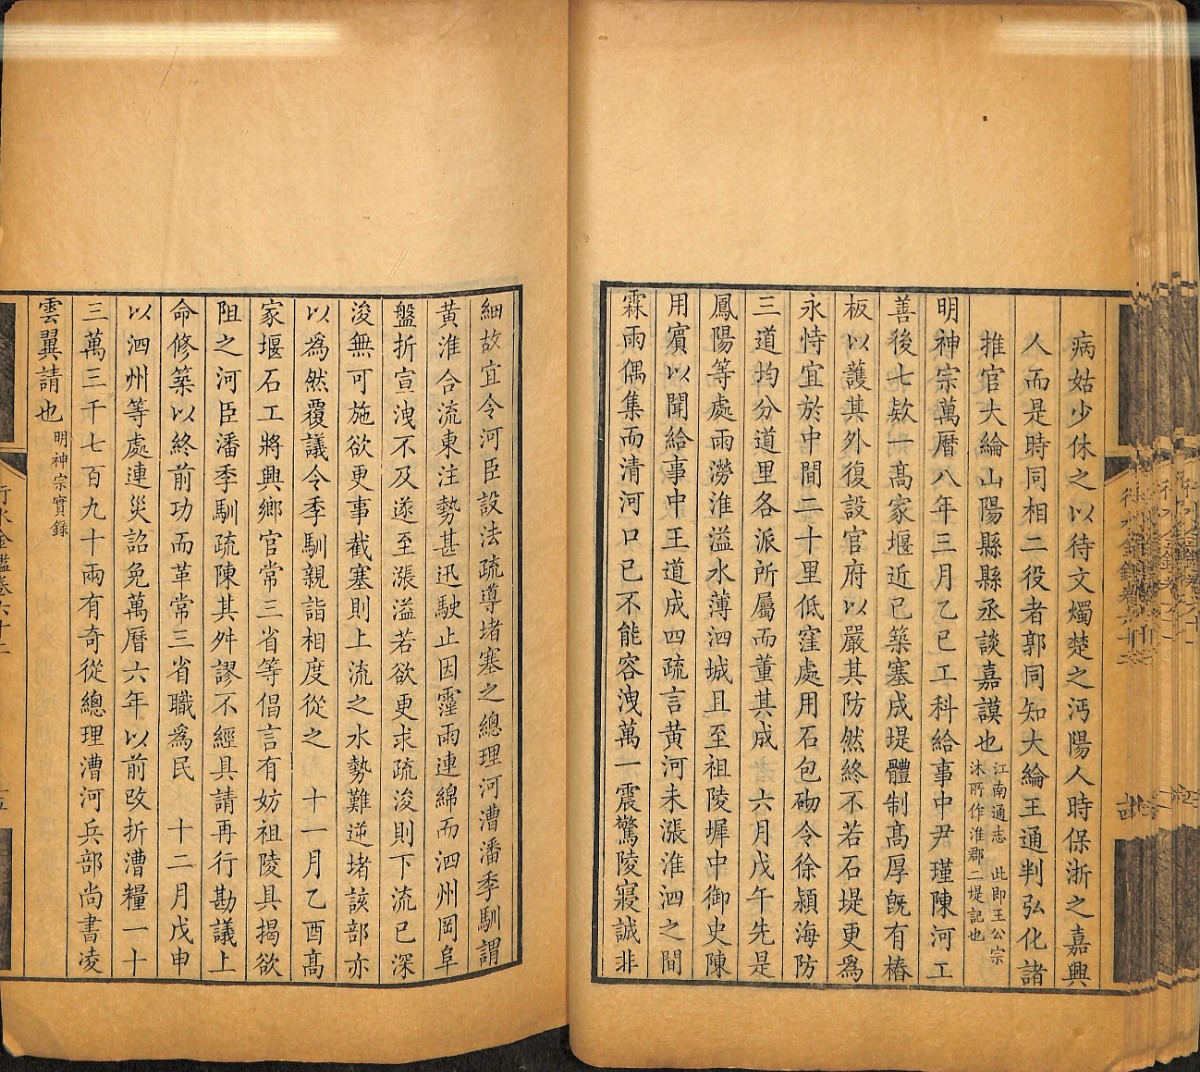 病姑少休之以待文燭楚之沔陽人時保浙之嘉興
人而是時同相二役者郭同知大綸王通判弘化諸
推官大綸山陽縣縣丞談嘉謨也江南通志　此即王公宗
沐所作淮郡二堤記也
明神宗萬曆八年三月乙巳工科給事中尹瑾陳河工
善後七欵一高家堰近已築塞成堤體制高厚旣有樁
板以護其外復設官府以嚴其防然終不若石堤更爲
永恃宜於中間二十里低窪處用石包砌令徐潁海防
三道均分道里各派所屬而董其成　六月戊午先是
鳳陽等處雨澇淮溢水薄泗城且至祖陵墀中御史陳
用賔以聞給事中王道成四疏言黄河未漲淮泗之間
霖雨偶集而清河口已不能容洩萬一震驚陵寢誠非
細故宜令河臣設法疏導堵塞之總理河漕潘季馴謂
黄淮合流東注勢甚迅駛止因霪雨連綿而泗州岡阜
盤折宣洩不及遂至漲溢若欲更求疏浚則下流已深
浚無可施欲更事截塞則上流之水勢難逆堵該部亦
以爲然覆議令季馴親詣相度從之　十一月乙酉高
家堰石工將興鄉官常三省等倡言有妨祖陵具揭欲
阻之河臣潘季馴疏陳其舛謬不經具請再行勘議上
命修築以終前功而革常三省職爲民　十二月戊申
以泗州等處連災詔免萬曆六年以前改折漕糧一十
三萬三千七百九十兩有奇從總理漕河兵部尚書凌
雲翼請也明神宗實錄
行水金鑑卷六十二